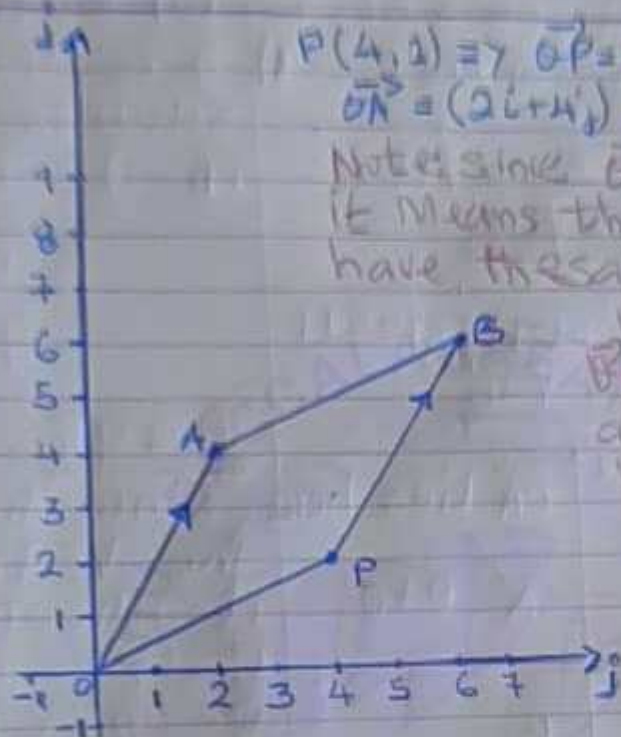 j
P(4,2) ≡> OP =
OA = (2i+4j)
Note, since
it Means th
have, thesa
9
8
7
6
5
4
3
2
1
B
A
P
-1 0 1 2 3 4 5 6 7 j
-1